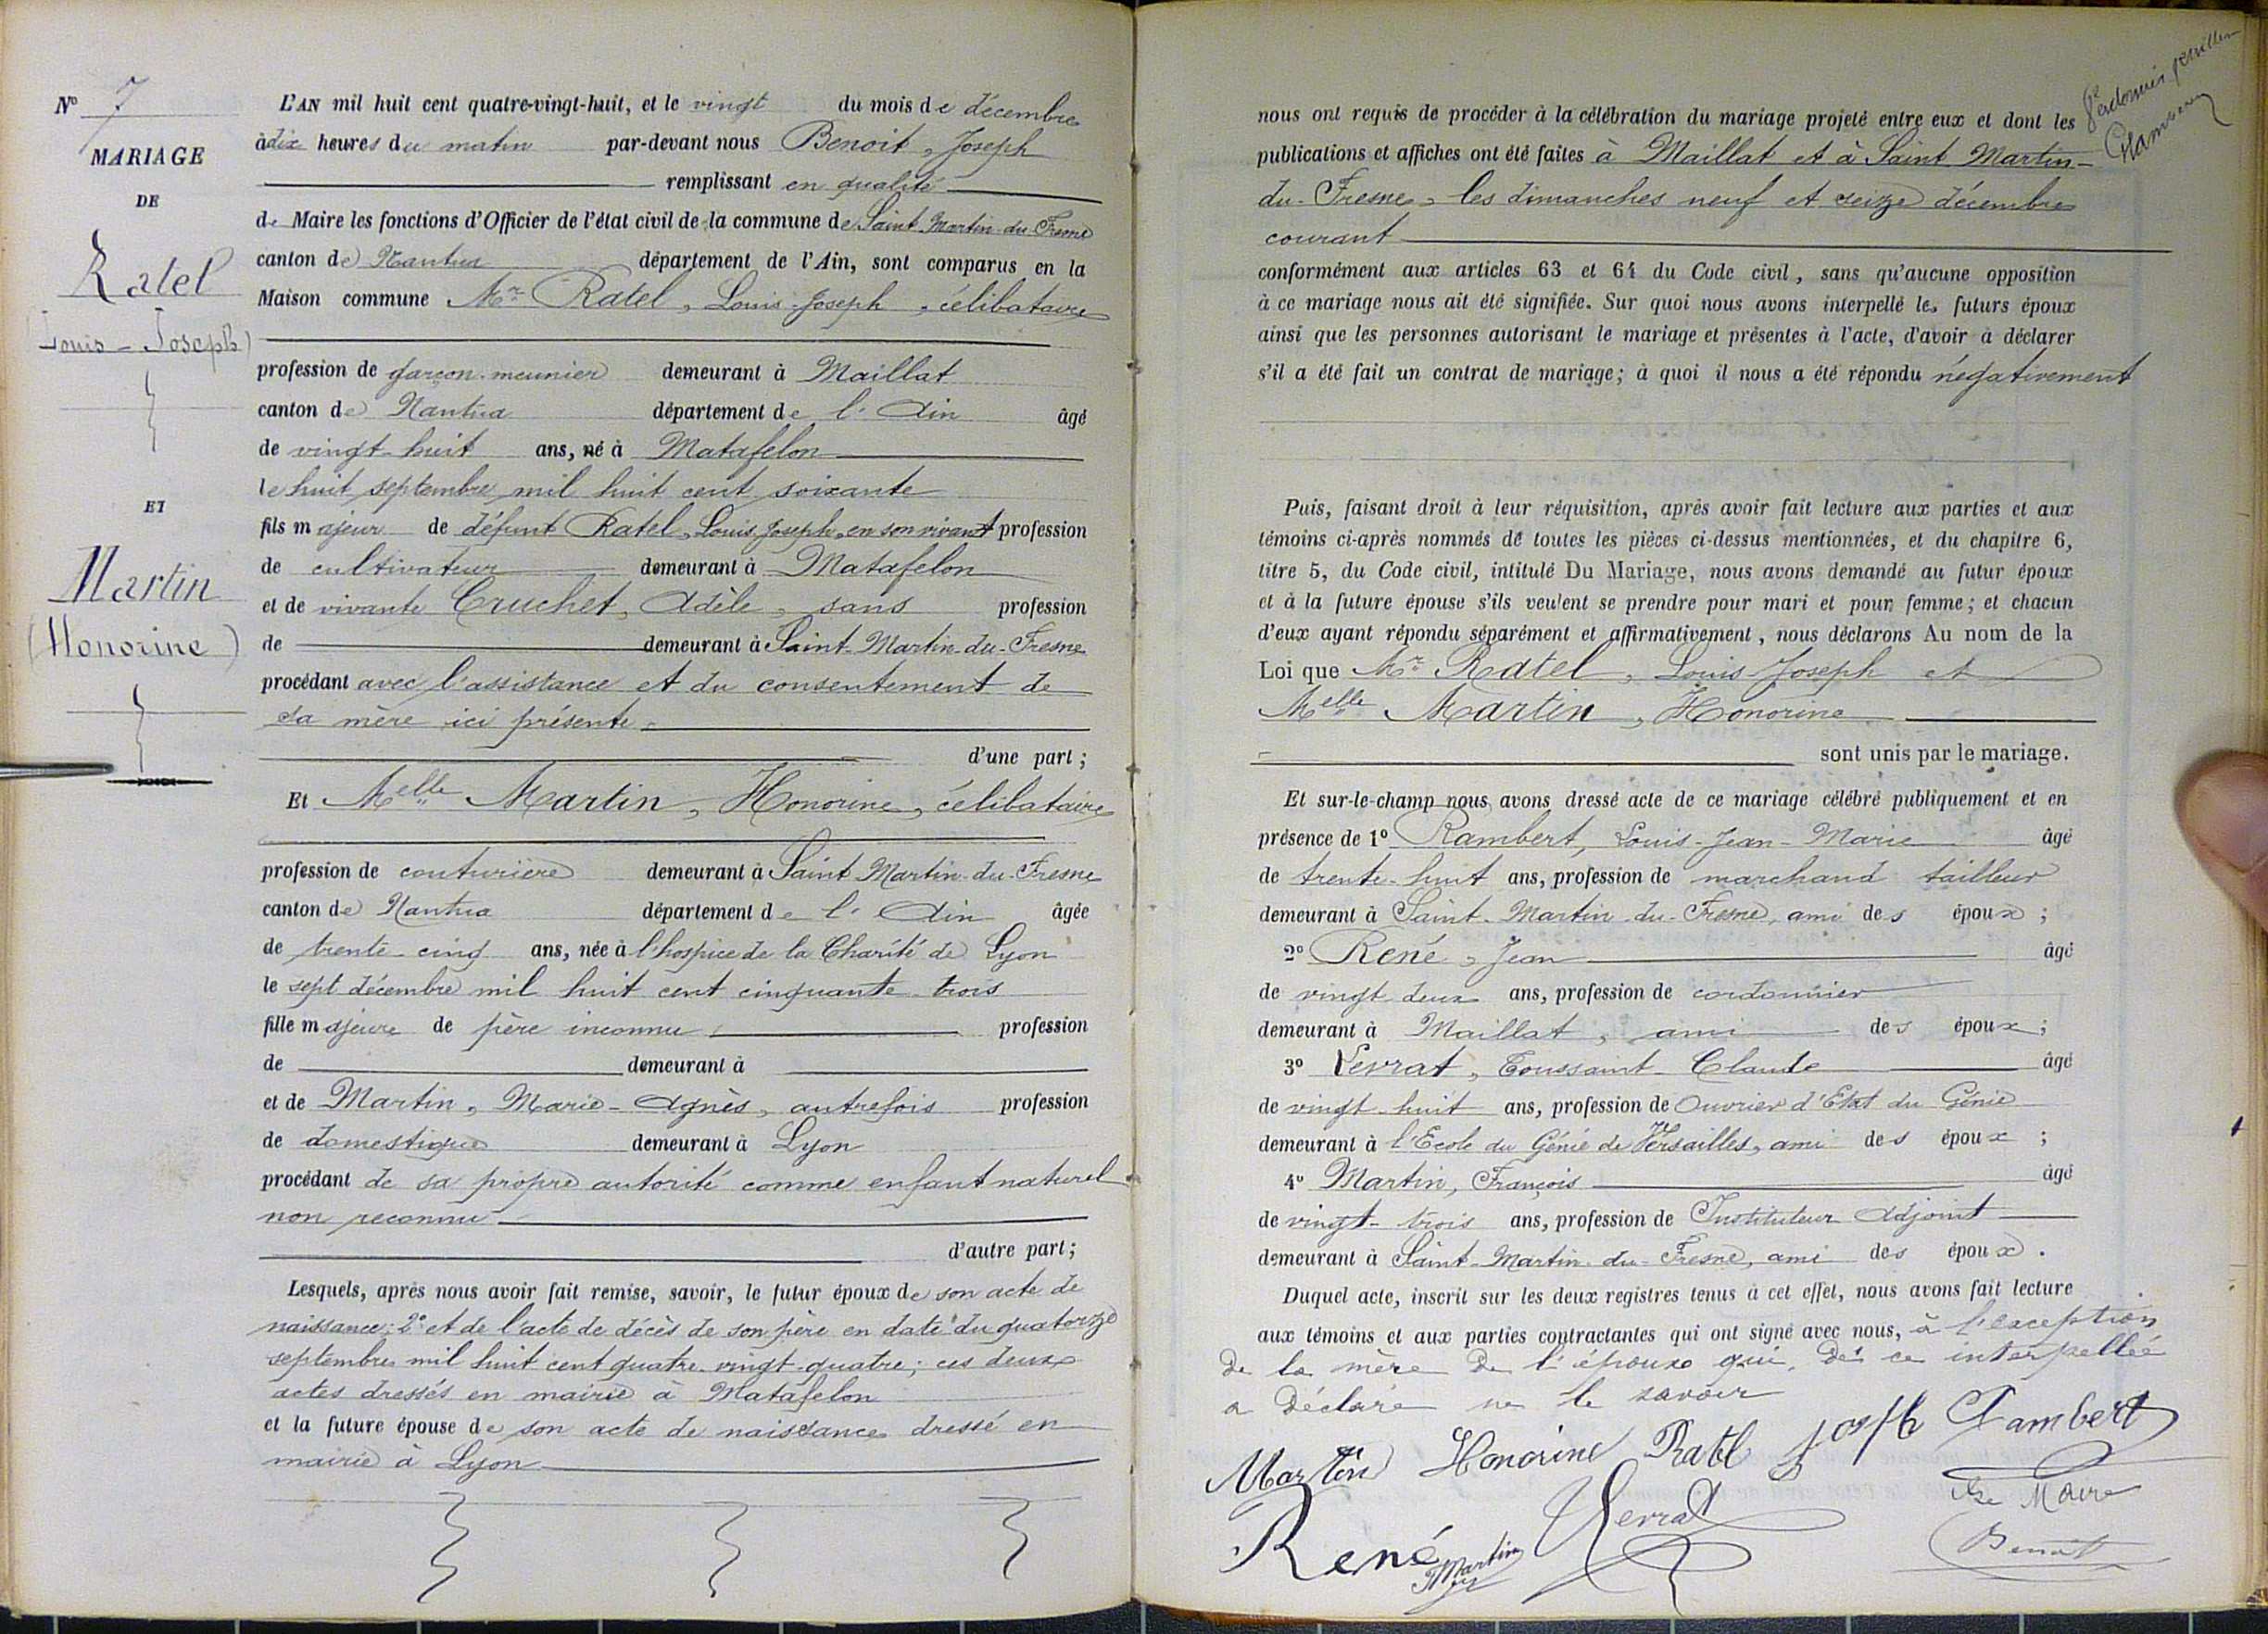 Nº 7
MARIAGE
DE
Ratel
(Louis-Joseph)
ET
Martin
(Honorine)
L'AN mil huit cent quatre-vingt-huit, et le vingt du mois de décembre
à dix heures du matin par-devant nous Benoit, Joseph
remplissant en qualité
de Maire les fonctions d'Officier de l'état civil de la commune de Saint Martin-du-Fresne
canton de Nantua département de l'Ain, sont comparus en la
Maison commune Mr Ratel, Louis-Joseph, célibataire
profession de garçon-meunier demeurant à Maillat
canton de Nantua département de l'Ain âgé
de vingt-huit ans, né à Matafelon
le huit septembre mil huit cent soixante
fils majeur de défunt Ratel, Louis Joseph, en son vivant profession
de cultivateur demeurant à Matafelon
et de vivante Cruchet, Adèle, sans profession
de demeurant à Saint-Martin-du-Fresne
procédant avec l'assistance et du consentement de
sa mère ici présente.
d'une part;
Et Melle Martin, Honorine, célibataire
profession de couturière demeurant à Saint Martin-du-Fresne
canton de Nantua département de l'Ain âgée
de trente-cinq ans, née à l'hospice de la Charité de Lyon
le sept décembre mil huit cent cinquante-trois
fille majeure de père inconnu profession
de demeurant à
et de Martin, Marie-Agnès, autrefois profession
de domestique demeurant à Lyon
procédant de sa propre autorité comme enfant naturel
non reconnu
d'autre part;
Lesquels, après nous avoir fait remise, savoir, le futur époux de son acte de
naissance; 2º et de l'acte de décès de son père en date du quatorze
septembre mil huit cent quatre-vingt-quatre; ces deux
actes dressés en mairie à Matafelon
et la future épouse de son acte de naissance dressé en
mairie à Lyon
nous ont requis de procéder à la célébration du mariage projeté entre eux et dont les
publications et affiches ont été faites à Maillat et à Saint Martin-
du-Fresne, les dimanches neuf et seize décembre
courant
conformément aux articles 63 et 64 du Code civil, sans qu'aucune opposition
à ce mariage nous ait été signifiée. Sur quoi nous avons interpellé les futurs époux
ainsi que les personnes autorisant le mariage et présentes à l'acte, d'avoir à déclarer
s'il a été fait un contrat de mariage; à quoi il nous a été répondu négativement
Puis, faisant droit à leur réquisition, après avoir fait lecture aux parties et aux
témoins ci-après nommés de toutes les pièces ci-dessus mentionnées, et du chapitre 6,
titre 5, du Code civil, intitulé Du Mariage, nous avons demandé au futur époux
et à la future épouse s'ils veulent se prendre pour mari et pour femme; et chacun
d'eux ayant répondu séparément et affirmativement, nous déclarons Au nom de la
Loi que Mr Ratel, Louis Joseph et
Melle Martin, Honorine
sont unis par le mariage.
Et sur-le-champ nous avons dressé acte de ce mariage célébré publiquement et en
présence de 1º Rambert, Louis-Jean-Marie âgé
de trente-huit ans, profession de marchand tailleur
demeurant à Saint-Martin-du-Fresne, ami des époux;
2º René, Jean âgé
de vingt deux ans, profession de cordonnier
demeurant à Maillat, ami des époux;
3º Verrat, Toussaint-Claude âgé
de vingt-huit ans, profession de Ouvrier d'Etat du Génie
demeurant à l'Ecole du Génie de Versailles, ami des époux;
4º Martin, François âgé
de vingt-trois ans, profession de Instituteur Adjoint
demeurant à Saint-Martin-du-Fresne, ami des époux.
Duquel acte, inscrit sur les deux registres tenus à cet effet, nous avons fait lecture
aux témoins et aux parties contractantes qui ont signé avec nous, à l'exception
de la mère de l'époux qui, de ce interpellée
a déclaré ne le savoir
Martin Honorine Ratel Joseph Rambert
René Martin Verrat
Le Maire
Benoit